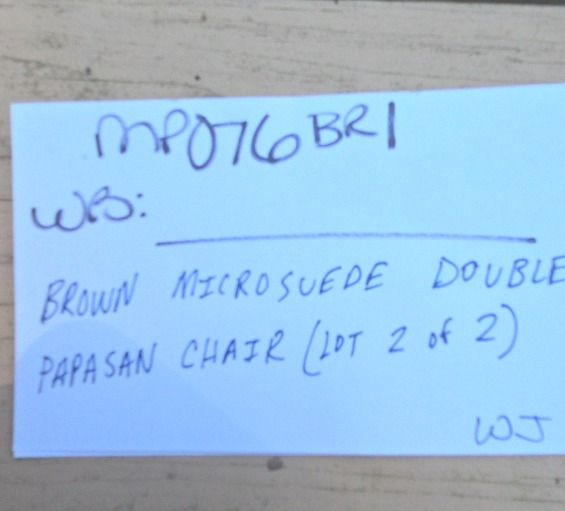 MP076BR1
WB:
BROWN MICROSUEDE DOUBLE
PAPASAN CHAIR (LOT 2 of 2)
WJ